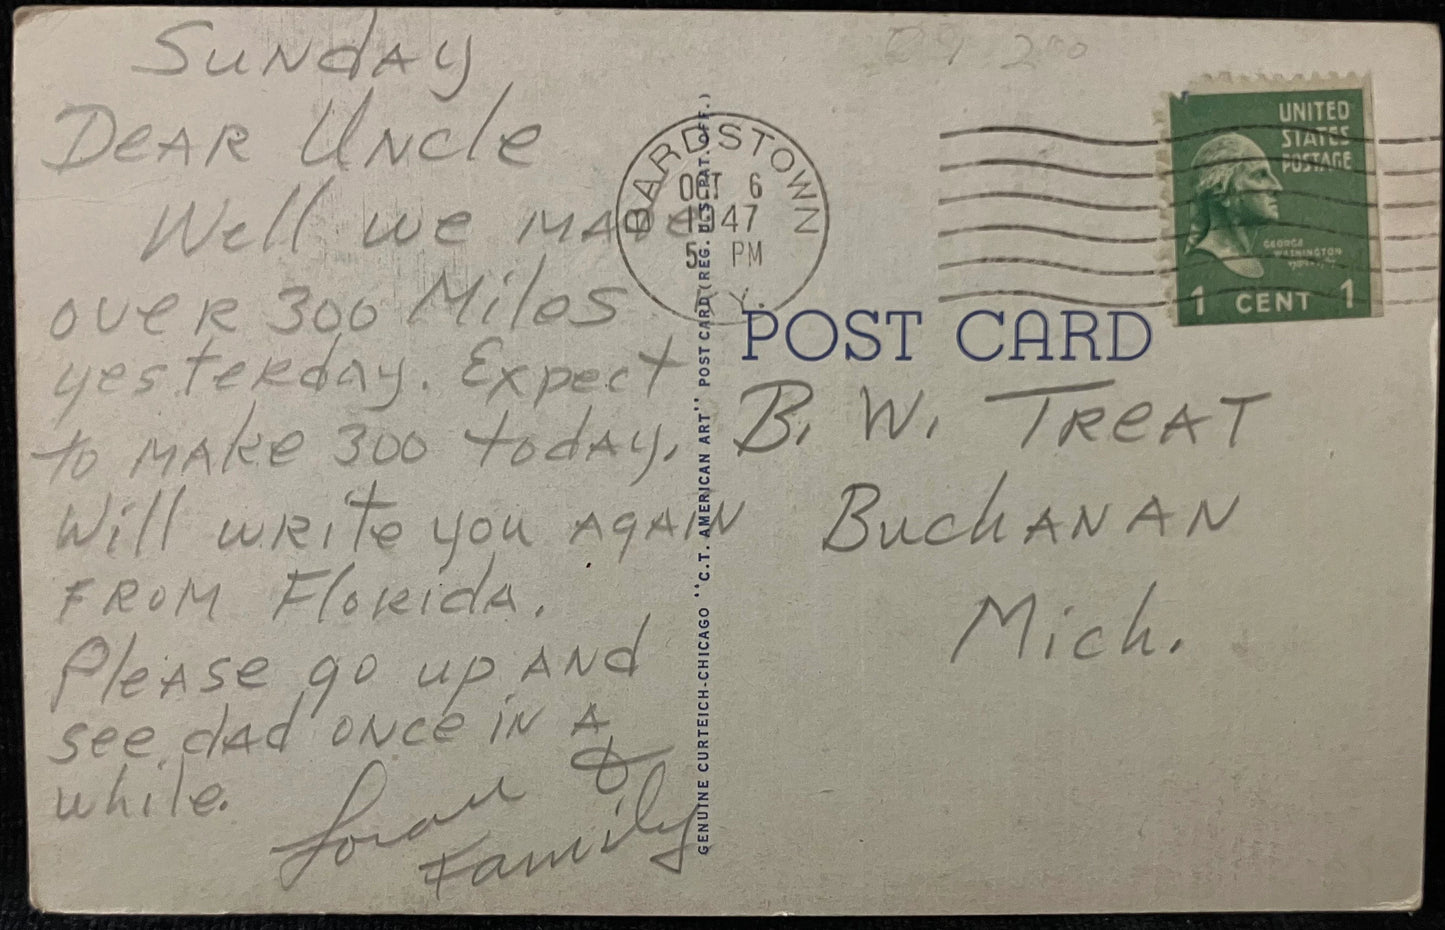 Sunday
Dear Uncle
Well we made
over 300 Miles
yesterday. Expect
to make 300 today.
Will write you again
from Florida.
Please go up and
see dad once in a
while.
&
Family
BARDSTOWN
OCT 6
1947
5 PM
KY.
GENUINE CURTEICH-CHICAGO "C.T. AMERICAN ART" POST CARD (REG. U.S. PAT. OFF.)
UNITED
STATES
POSTAGE
GEORGE
WASHINGTON
1 CENT 1
POST CARD
B. W. Treat
Buchanan
Mich.